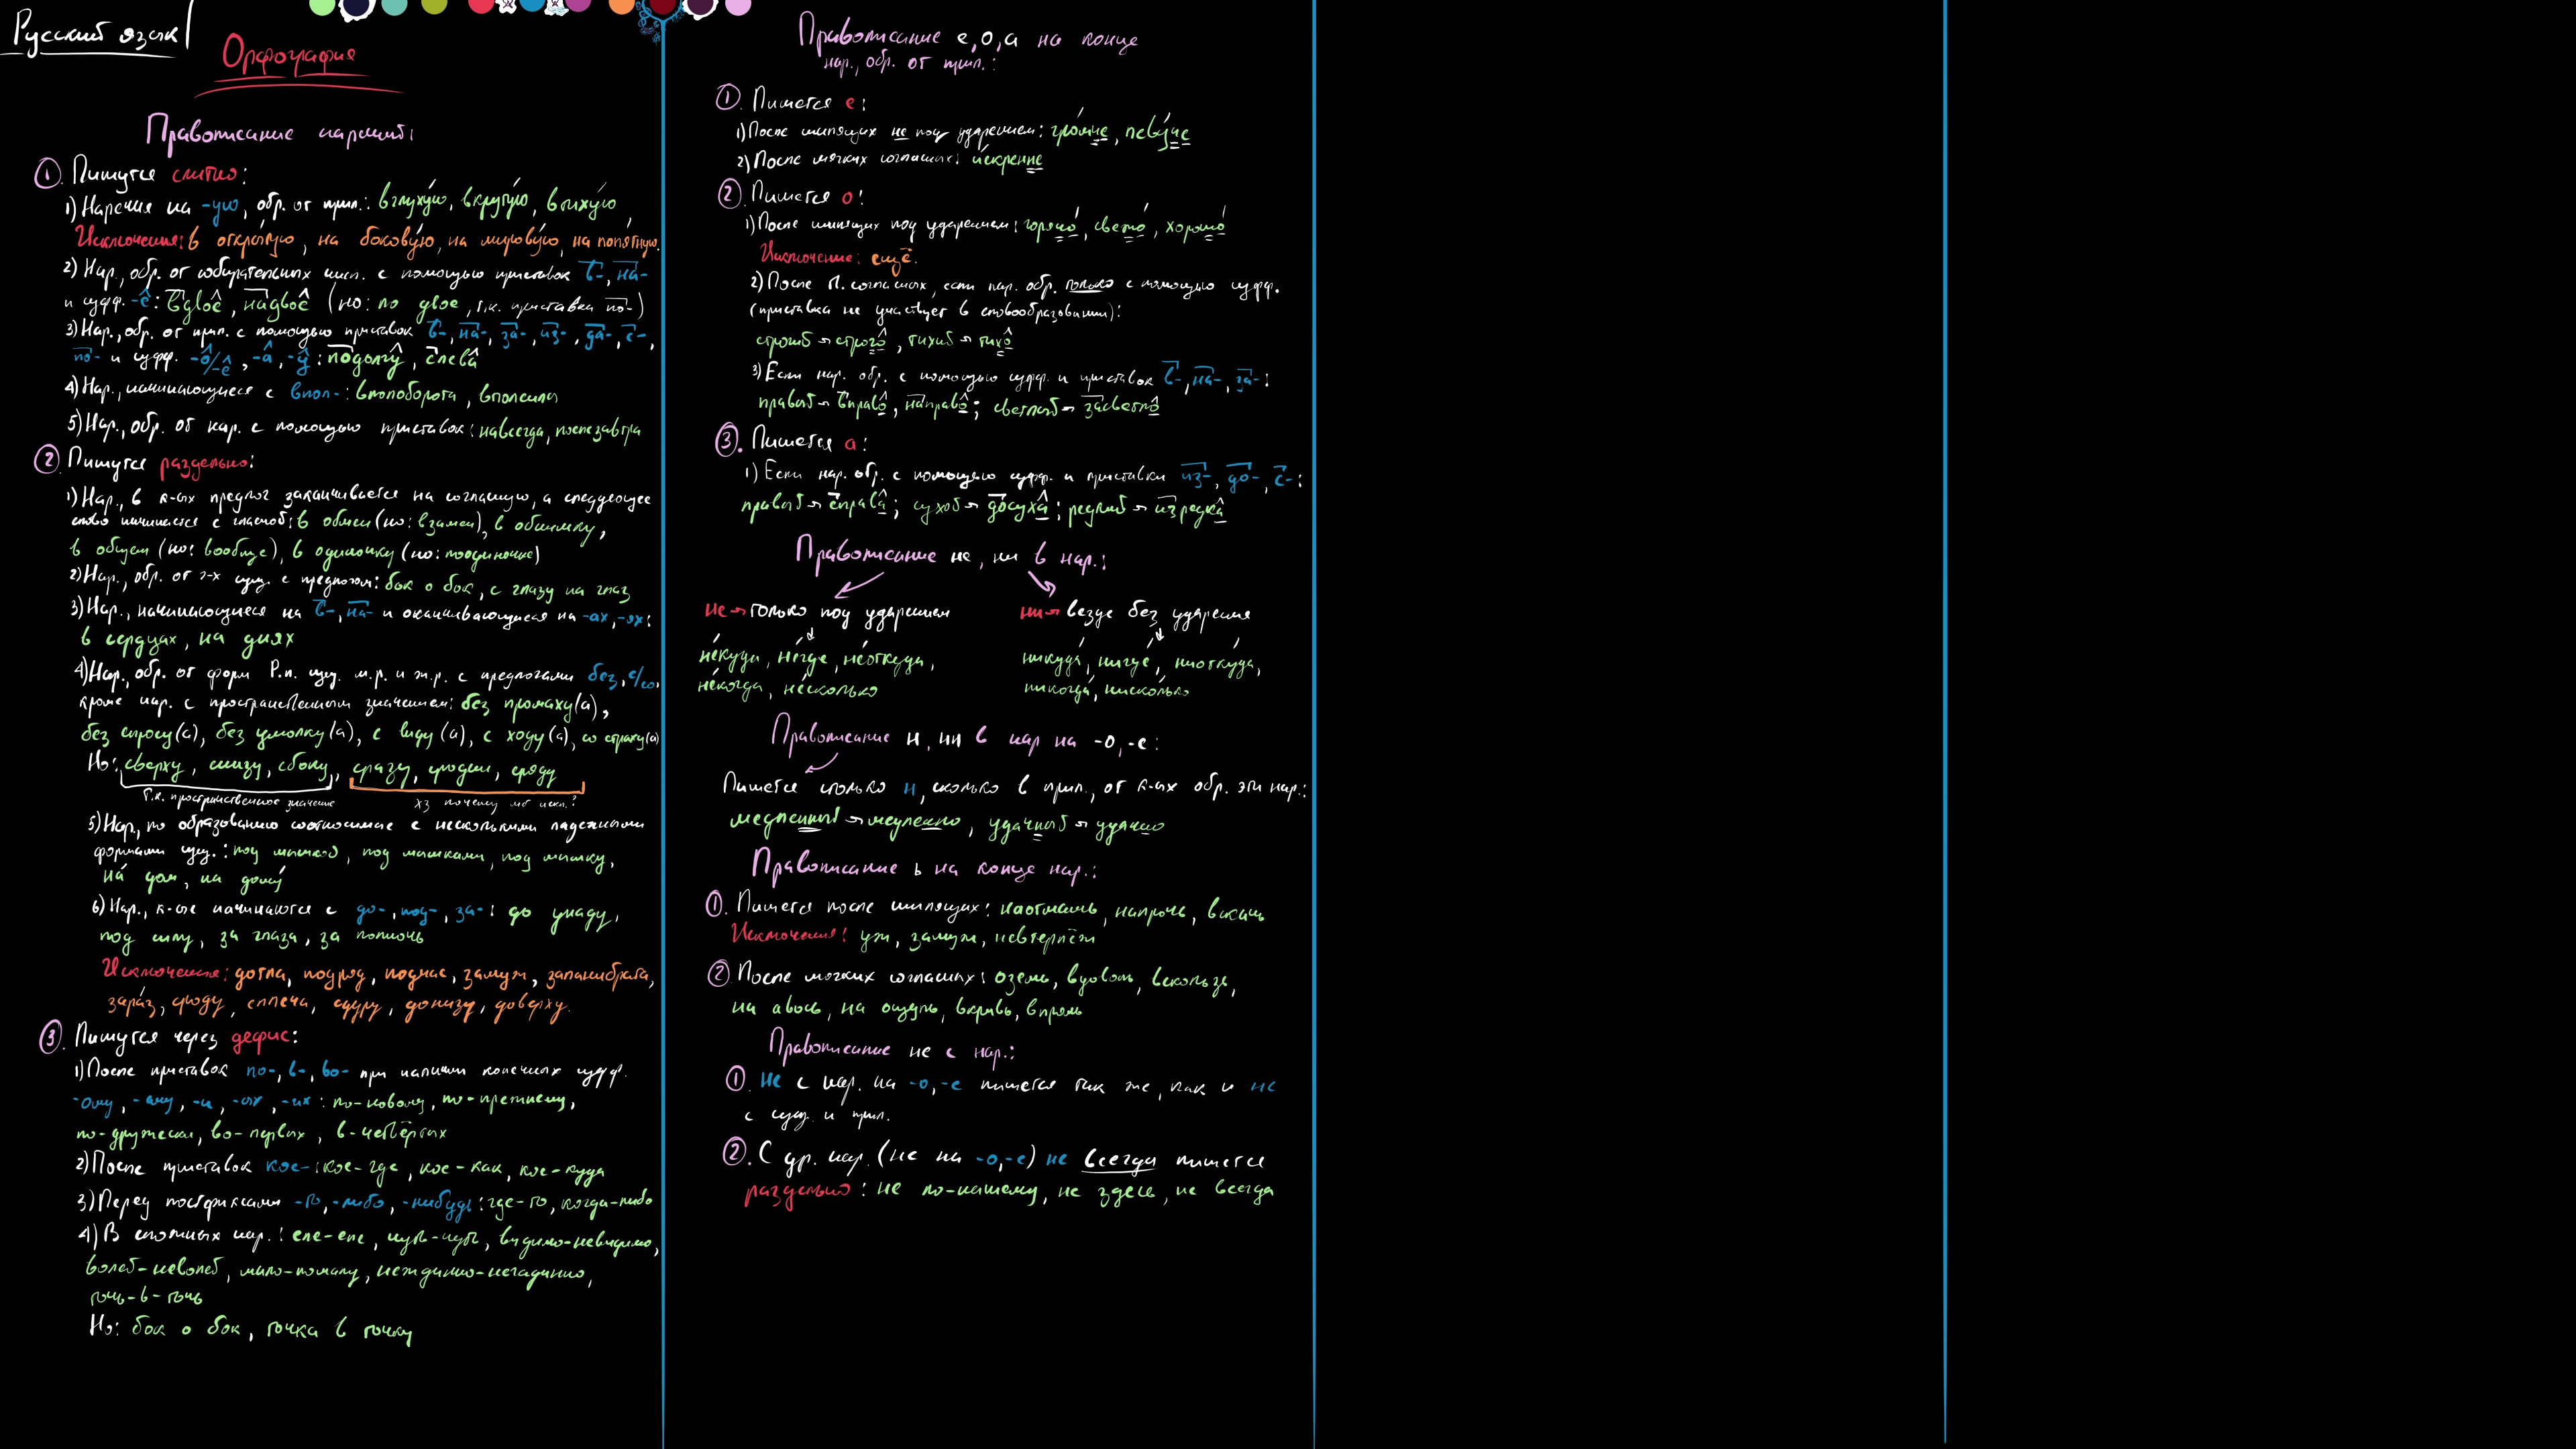 Русский язык
Орфография
Правописание наречий:
1. Пишутся слитно:
1) Наречия на -ую, обр. от прил.: вглухую, вкрутую, втихую,
Исключения: в открытую, на боковую, на мировую, на попятную.
2) Нар., обр. от собирательных числ. с помощью приставок в-, на-
и суфф. -е: вдвое, надвое (но: по двое, т.к. приставка по-)
3) Нар., обр. от прил. с помощью приставок в-, на-, за-, из-, да-, с-,
по- и суфф. -о/-е, -а, -у: подолгу, слева
4) Нар., начинающиеся с впол-: вполоборота, вполсилы
5) Нар., обр. от нар. с помощью приставок: навсегда, послезавтра
2. Пишутся раздельно:
1) Нар., в к-ых предлог заканчивается на согласную, а следующее
слово начинается с гласной: в обмен (но: взамен), в обнимку,
в общем (но: вообще), в одиночку (но: поодиночке)
2) Нар., обр. от 2-х сущ. с предлогом: бок о бок, с глазу на глаз
3) Нар., начинающиеся на в-, на- и оканчивающиеся на -ах, -ях:
в сердцах, на днях
4) Нар., обр. от форм Р.п. сущ. м.р. и ж.р. с предлогами без, с/со,
кроме нар. с пространственным значением: без промаху(а),
без спросу(а), без умолку(а), с виду(а), с ходу(а), со страху(а)
Но: сверху, снизу, сбоку, сразу, сродни, сряду
т.к. пространственное значение хз почему мб искл.?
5) Нар., по образованию соотносимые с несколькими падежными
формами сущ.: под мышкой, под мышками, под мышку,
на дом, на дому
6) Нар., к-ые начинаются с до-, под-, за-: до упаду,
под силу, за глаза, за полночь
Исключения: дотла, подряд, подчас, замуж, запанибрата,
зараз, сряду, сплеча, сдуру, донизу, доверху.
3. Пишутся через дефис:
1) После приставок по-, в-, во- при наличии конечных суфф.
-ому, -ему, -и, -ых, -их: по-новому, по-прежнему,
по-дружески, во-первых, в-четвёртых
2) После приставок кое-: кое-где, кое-как, кое-куда
3) Перед постфиксами -то, -либо, -нибудь: где-то, когда-либо
4) В сложных нар.: еле-еле, чуть-чуть, видимо-невидимо,
волей-неволей, мало-помалу, нежданно-негаданно,
точь-в-точь
Но: бок о бок, точка в точку
Правописание е, о, а на конце
нар., обр. от прил.:
1. Пишется е:
1) После шипящих не под ударением: громче, певуче
2) После мягких согласных: искренне
2. Пишется о:
1) После шипящих под ударением: горячо, свежо, хорошо
Исключение: ещё.
2) После тв. согласных, если нар. обр. только с помощью суфф.
(приставка не участвует в словообразовании):
строгий → строго, тихий → тихо
3) Если нар. обр. с помощью суфф. и приставок в-, на-, за-:
правый → вправо, направо; светлый → засветло
3. Пишется а:
1) Если нар. обр. с помощью суфф. и приставки из-, до-, с-:
правый → справа; сухой → досуха; редкий → изредка
Правописание не, ни в нар.:
не → только под ударением ни → везде без ударения
некуда, негде, неоткуда, никуда, нигде, ниоткуда,
некогда, несколько никогда, нисколько
Правописание н, нн в нар на -о, -е:
Пишется столько н, сколько в прил., от к-ых обр. эти нар.:
медленный → медленно, удачный → удачно
Правописание ь на конце нар.:
1. Пишется после шипящих: наотмашь, напрочь, вскачь
Исключения: уж, замуж, невтерпёж
2. После мягких согласных: оземь, вдоволь, вскользь,
на авось, на ощупь, вкривь, впрямь
Правописание не с нар.:
1. Не с нар. на -о, -е пишется так же, как и не
с сущ. и прил.
2. С др. нар. (не на -о, -е) не всегда пишется
раздельно: не по-нашему, не здесь, не всегда